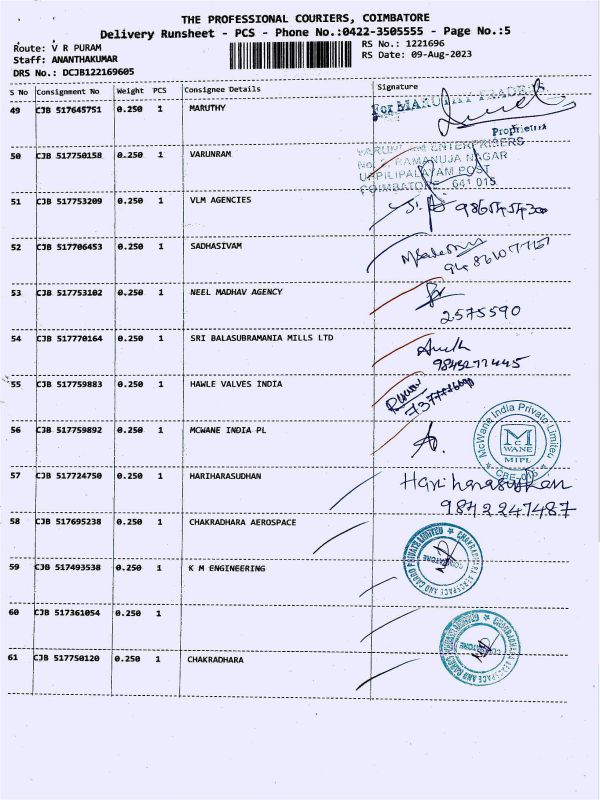 THE PROFESSIONAL COURIERS, COIMBATORE
Delivery Runsheet - PCS - Phone No.:0422-3505555 - Page No.:5
Route: V R PURAM
RS No.: 1221696
Staff: ANANTHAKUMAR
RS Date: 09-Aug-2023
DRS No.: DCJB122169605
S No Consignment No Weight PCS Consignee Details Signature
49 CJB 517645751 0.250 1 MARUTHY
For MARUTHY TRADERS
Proprietrix
50 CJB 517750158 0.250 1 VARUNRAM
ENTERPRISERS
RAMANUJA NAGAR
UPPILIPALAYAM POST
COIMBATORE 641 015
51 CJB 517753209 0.250 1 VLM AGENCIES
52 CJB 517706453 0.250 1 SADHASIVAM
53 CJB 517753102 0.250 1 NEEL MADHAV AGENCY
2575590
54 CJB 517770164 0.250 1 SRI BALASUBRAMANIA MILLS LTD
55 CJB 517759883 0.250 1 HAWLE VALVES INDIA
56 CJB 517759892 0.250 1 MCWANE INDIA PL
McWane India Private Limited
MCWANE
MIPL
CBE-015
57 CJB 517724750 0.250 1 HARIHARASUDHAN
Hariharasudhan
9842247487
58 CJB 517695238 0.250 1 CHAKRADHARA AEROSPACE
CHAKRADHARA AEROSPACE AND CARGO PRIVATE LIMITED
COIMBATORE
59 CJB 517493538 0.250 1 K M ENGINEERING
60 CJB 517361054 0.250 1
61 CJB 517750120 0.250 1 CHAKRADHARA
CHAKRADHARA AEROSPACE AND CARGO PRIVATE LIMITED
COIMBATORE